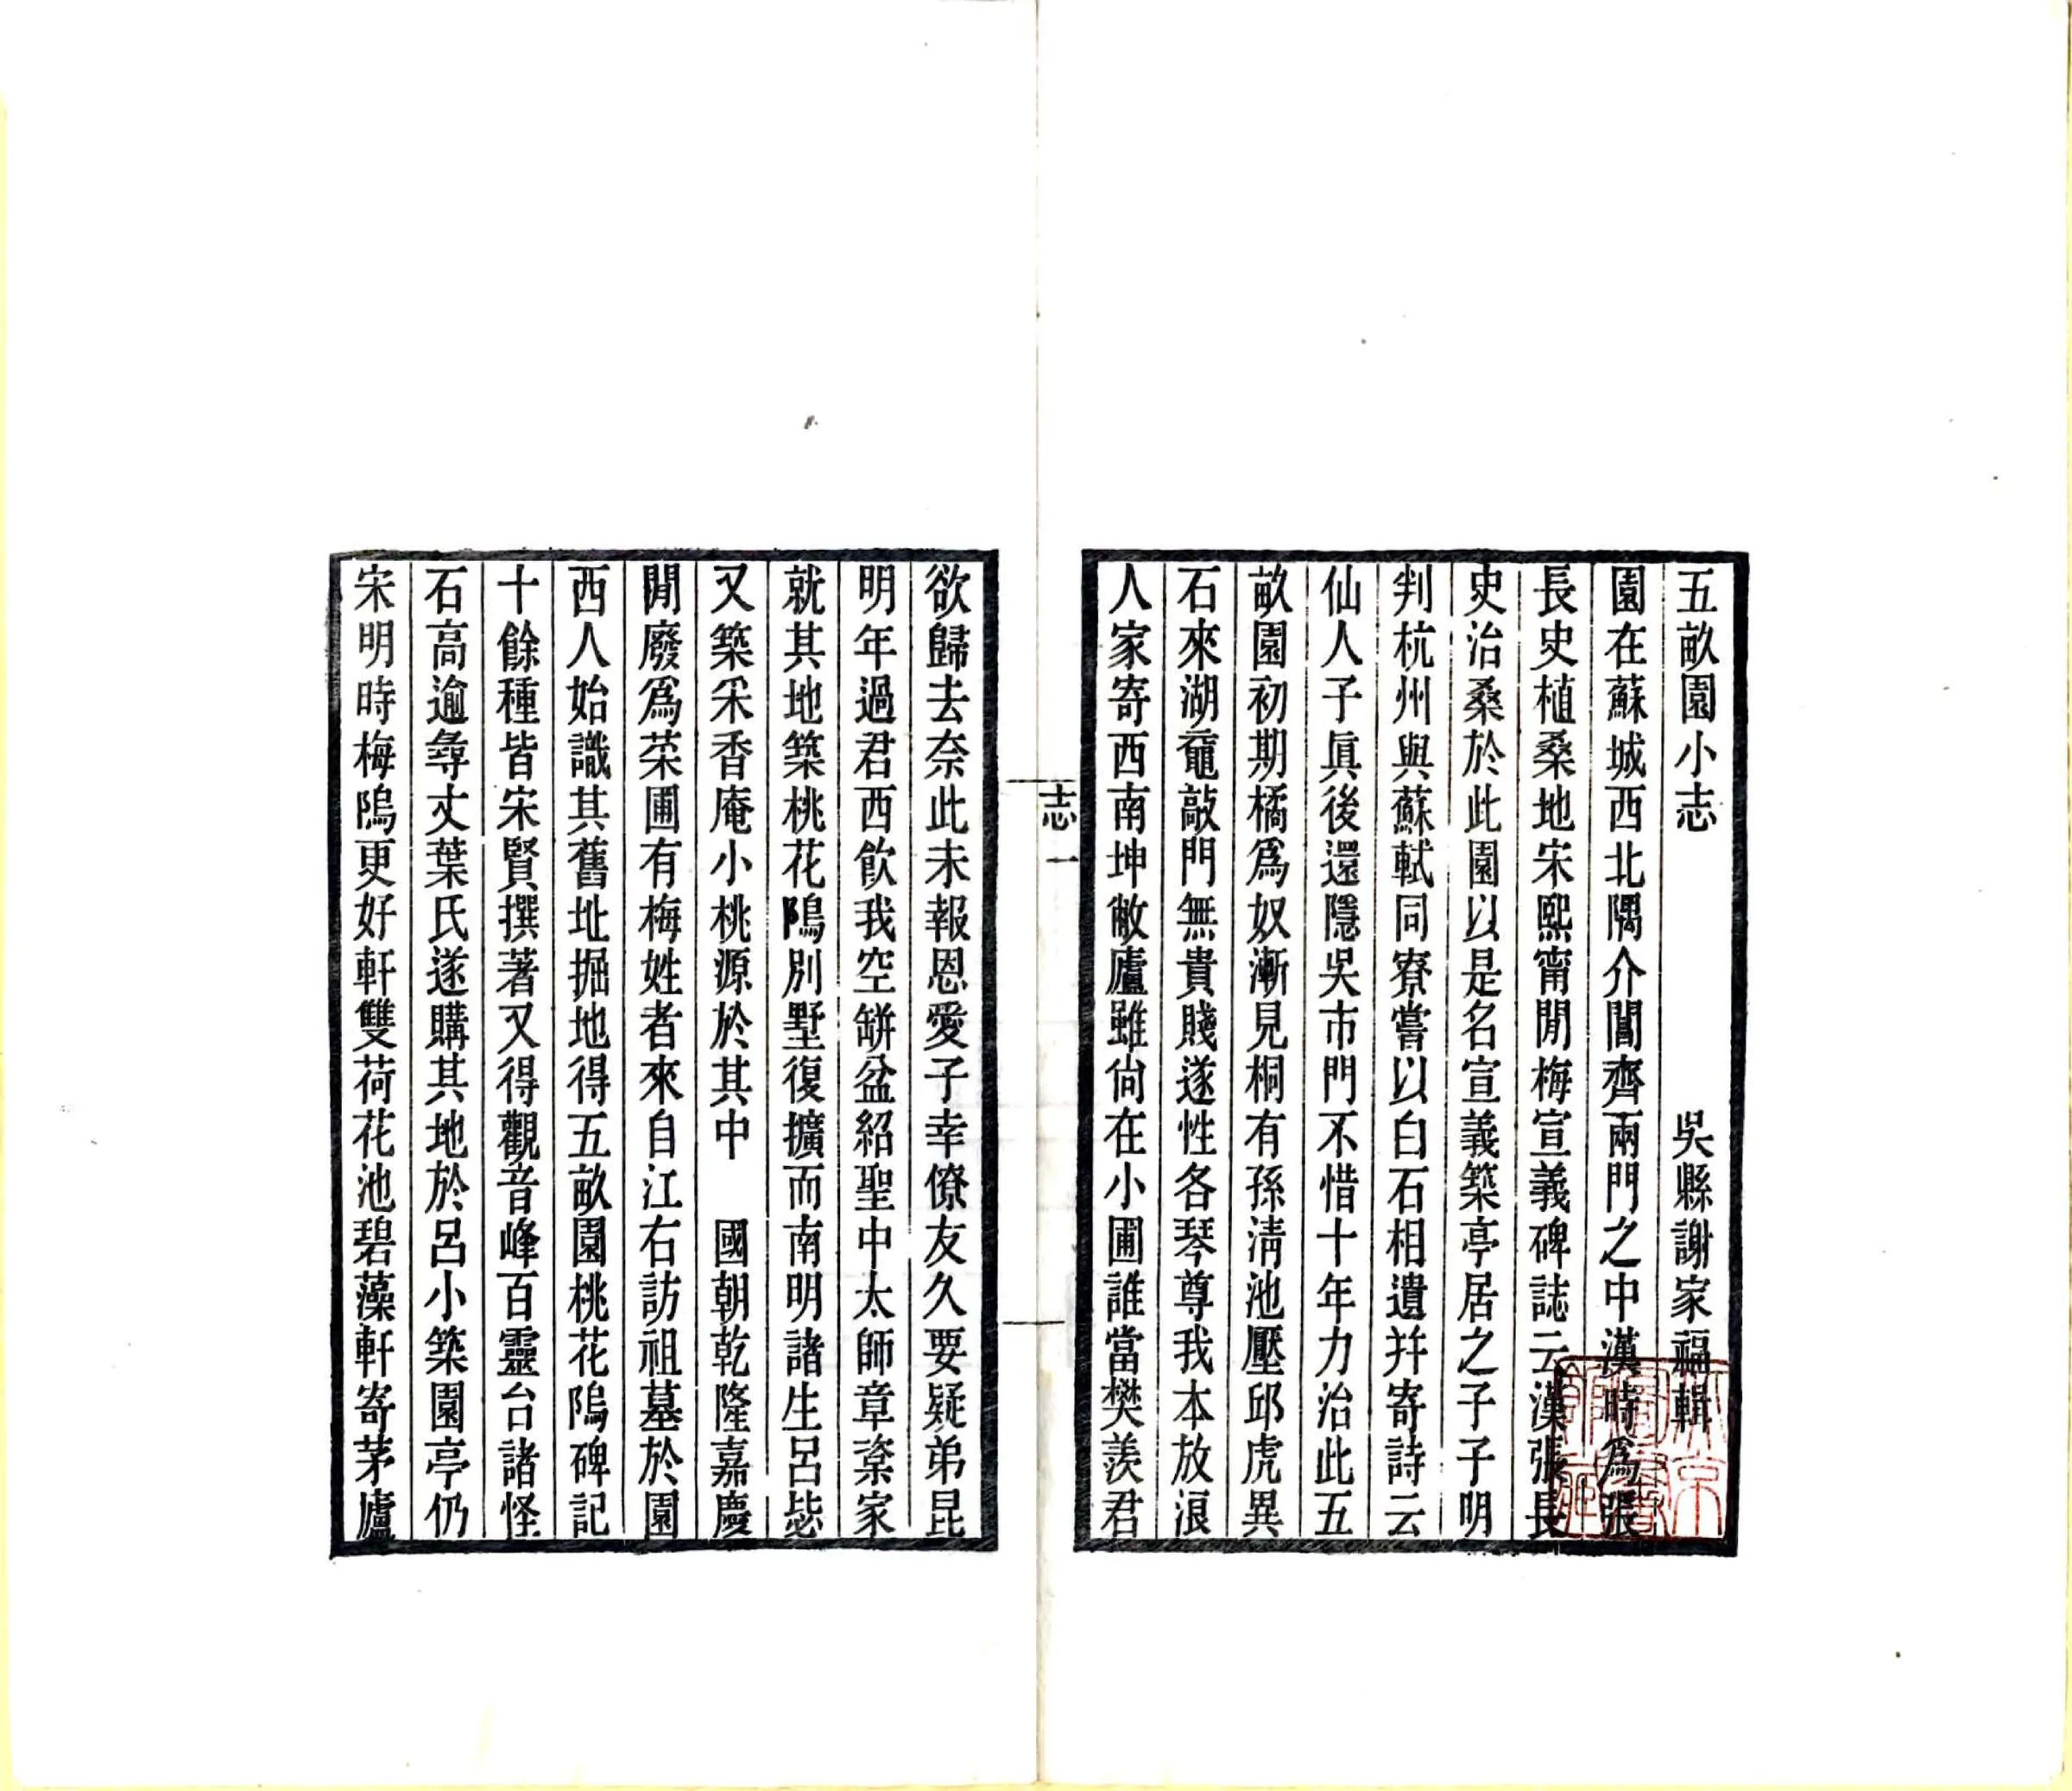 五畝園小志　吳縣謝家福輯
園在蘇城西北隅介閶齊兩門之中漢時爲張
長史植桑地宋熙甯閒梅宣義碑誌云漢張長
史治桑於此園以是名宣義築亭居之子子明
判杭州與蘇軾同寮嘗以白石相遺幷寄詩云
仙人子眞後還隱吳市門不惜十年力治此五
畝園初期橘爲奴漸見桐有孫淸池壓邱虎異
石來湖黿敲門無貴賤遂性各琴尊我本放浪
人家寄西南坤敝廬雖尙在小圃誰當樊羨君
志
一
欲歸去奈此未報恩愛子幸僚友久要疑弟昆
明年過君西飮我空缾盆紹聖中太師章楶家
就其地築桃花隖別墅復擴而南明諸生呂毖
又築采香庵小桃源於其中　國朝乾隆嘉慶
閒廢爲菜圃有梅姓者來自江右訪祖墓於園
西人始識其舊址掘地得五畝園桃花塢碑記
十餘種皆宋賢撰著又得觀音峰百靈台諸怪
石高逾尋丈葉氏遂購其地於呂小築園亭仍
宋明時梅塢更好軒雙荷花池碧藻軒寄茅廬